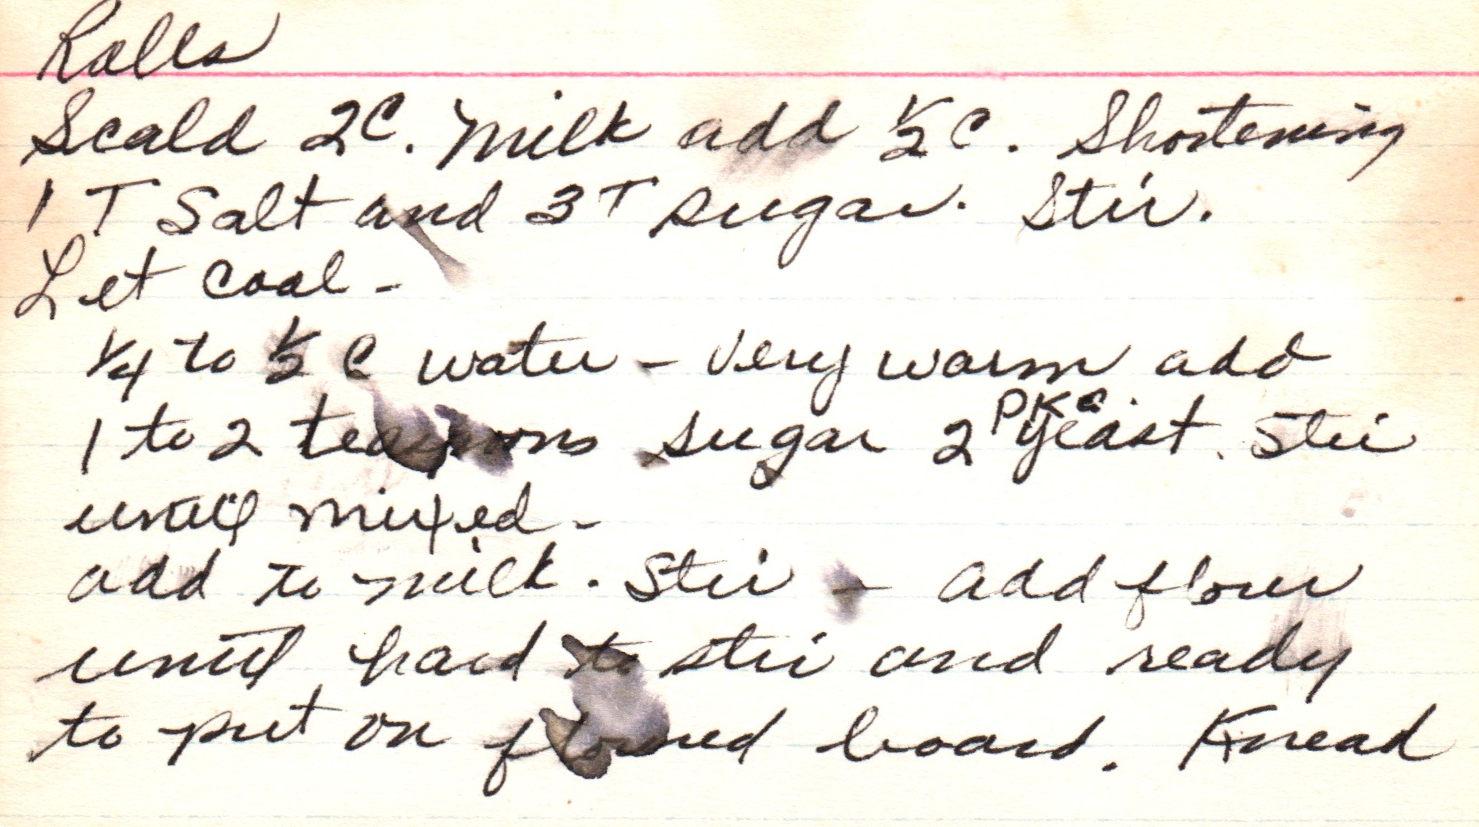 Rolls
Scald 2C. Milk add 1/2 C. Shortening
1 T Salt and 3 T sugar. Stir.
Let cool -
1/4 to 1/2 C water - very warm add
1 to 2 teaspoons sugar 2 PKG yeast. Stir
until mixed -
add to milk. Stir - add flour
until hard to stir and ready
to put on floured board. Knead